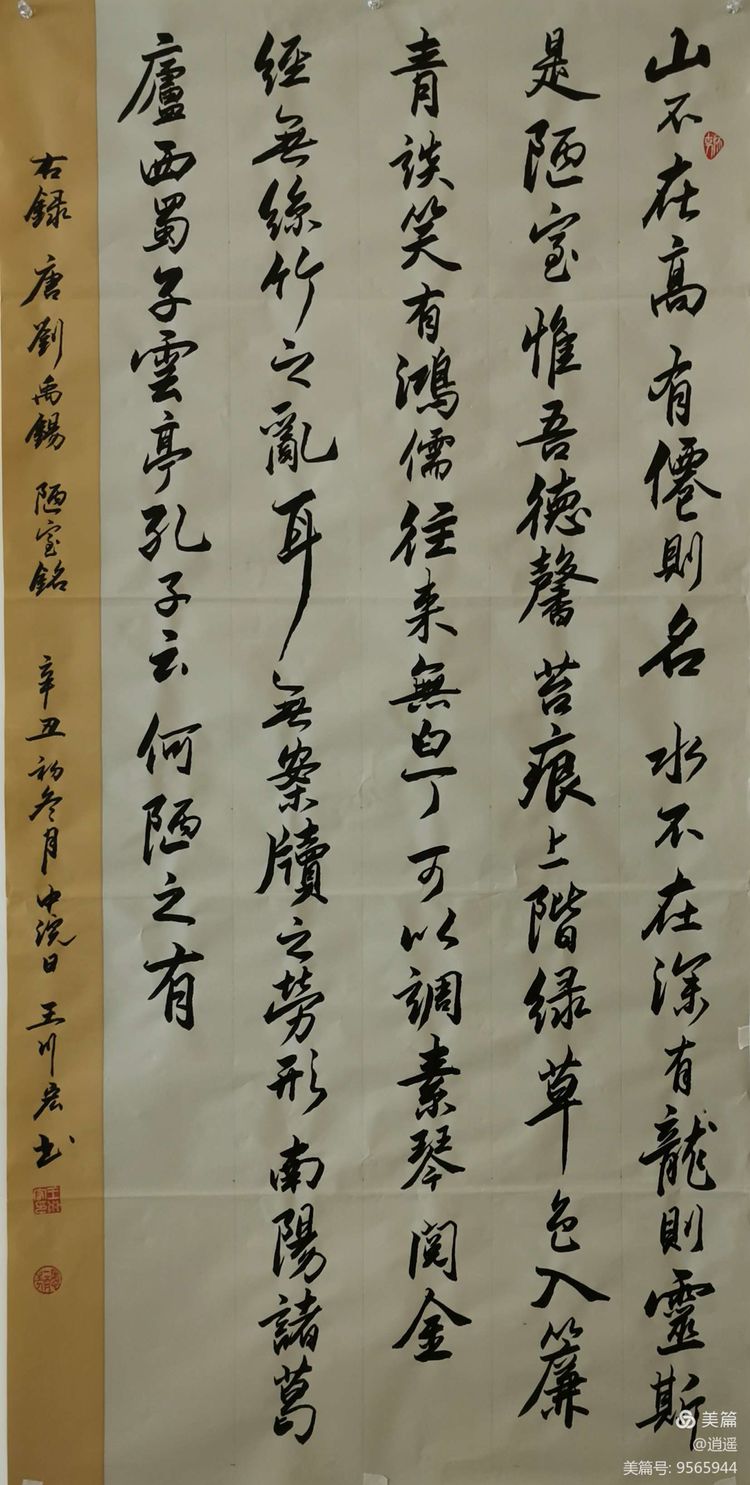 山不在高有僊則名水不在深有龍則靈斯
是陋室惟吾德馨苔痕上階緑草色入簾
青談笑有鴻儒往来無白丁可以調素琴閱金
經無絲竹之亂耳無案牘之勞形南陽諸葛
廬西蜀子雲亭孔子云何陋之有
右録唐劉禹錫陋室銘辛丑初冬月中浣日王川宏书
美篇
@逍遥
美篇号: 9565944